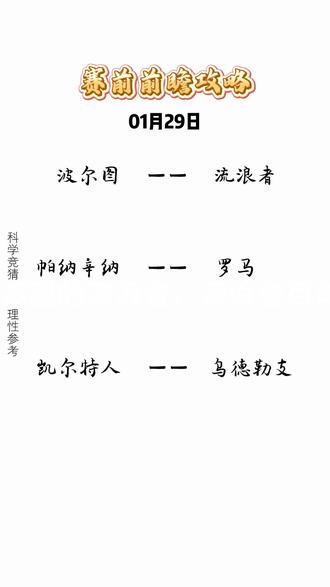 赛前前瞻攻略
01月29日
波尔图 一一 流浪者
科学竞猜
帕纳辛纳 一一 罗马
理性参考
凯尔特人 一一 乌德勒支